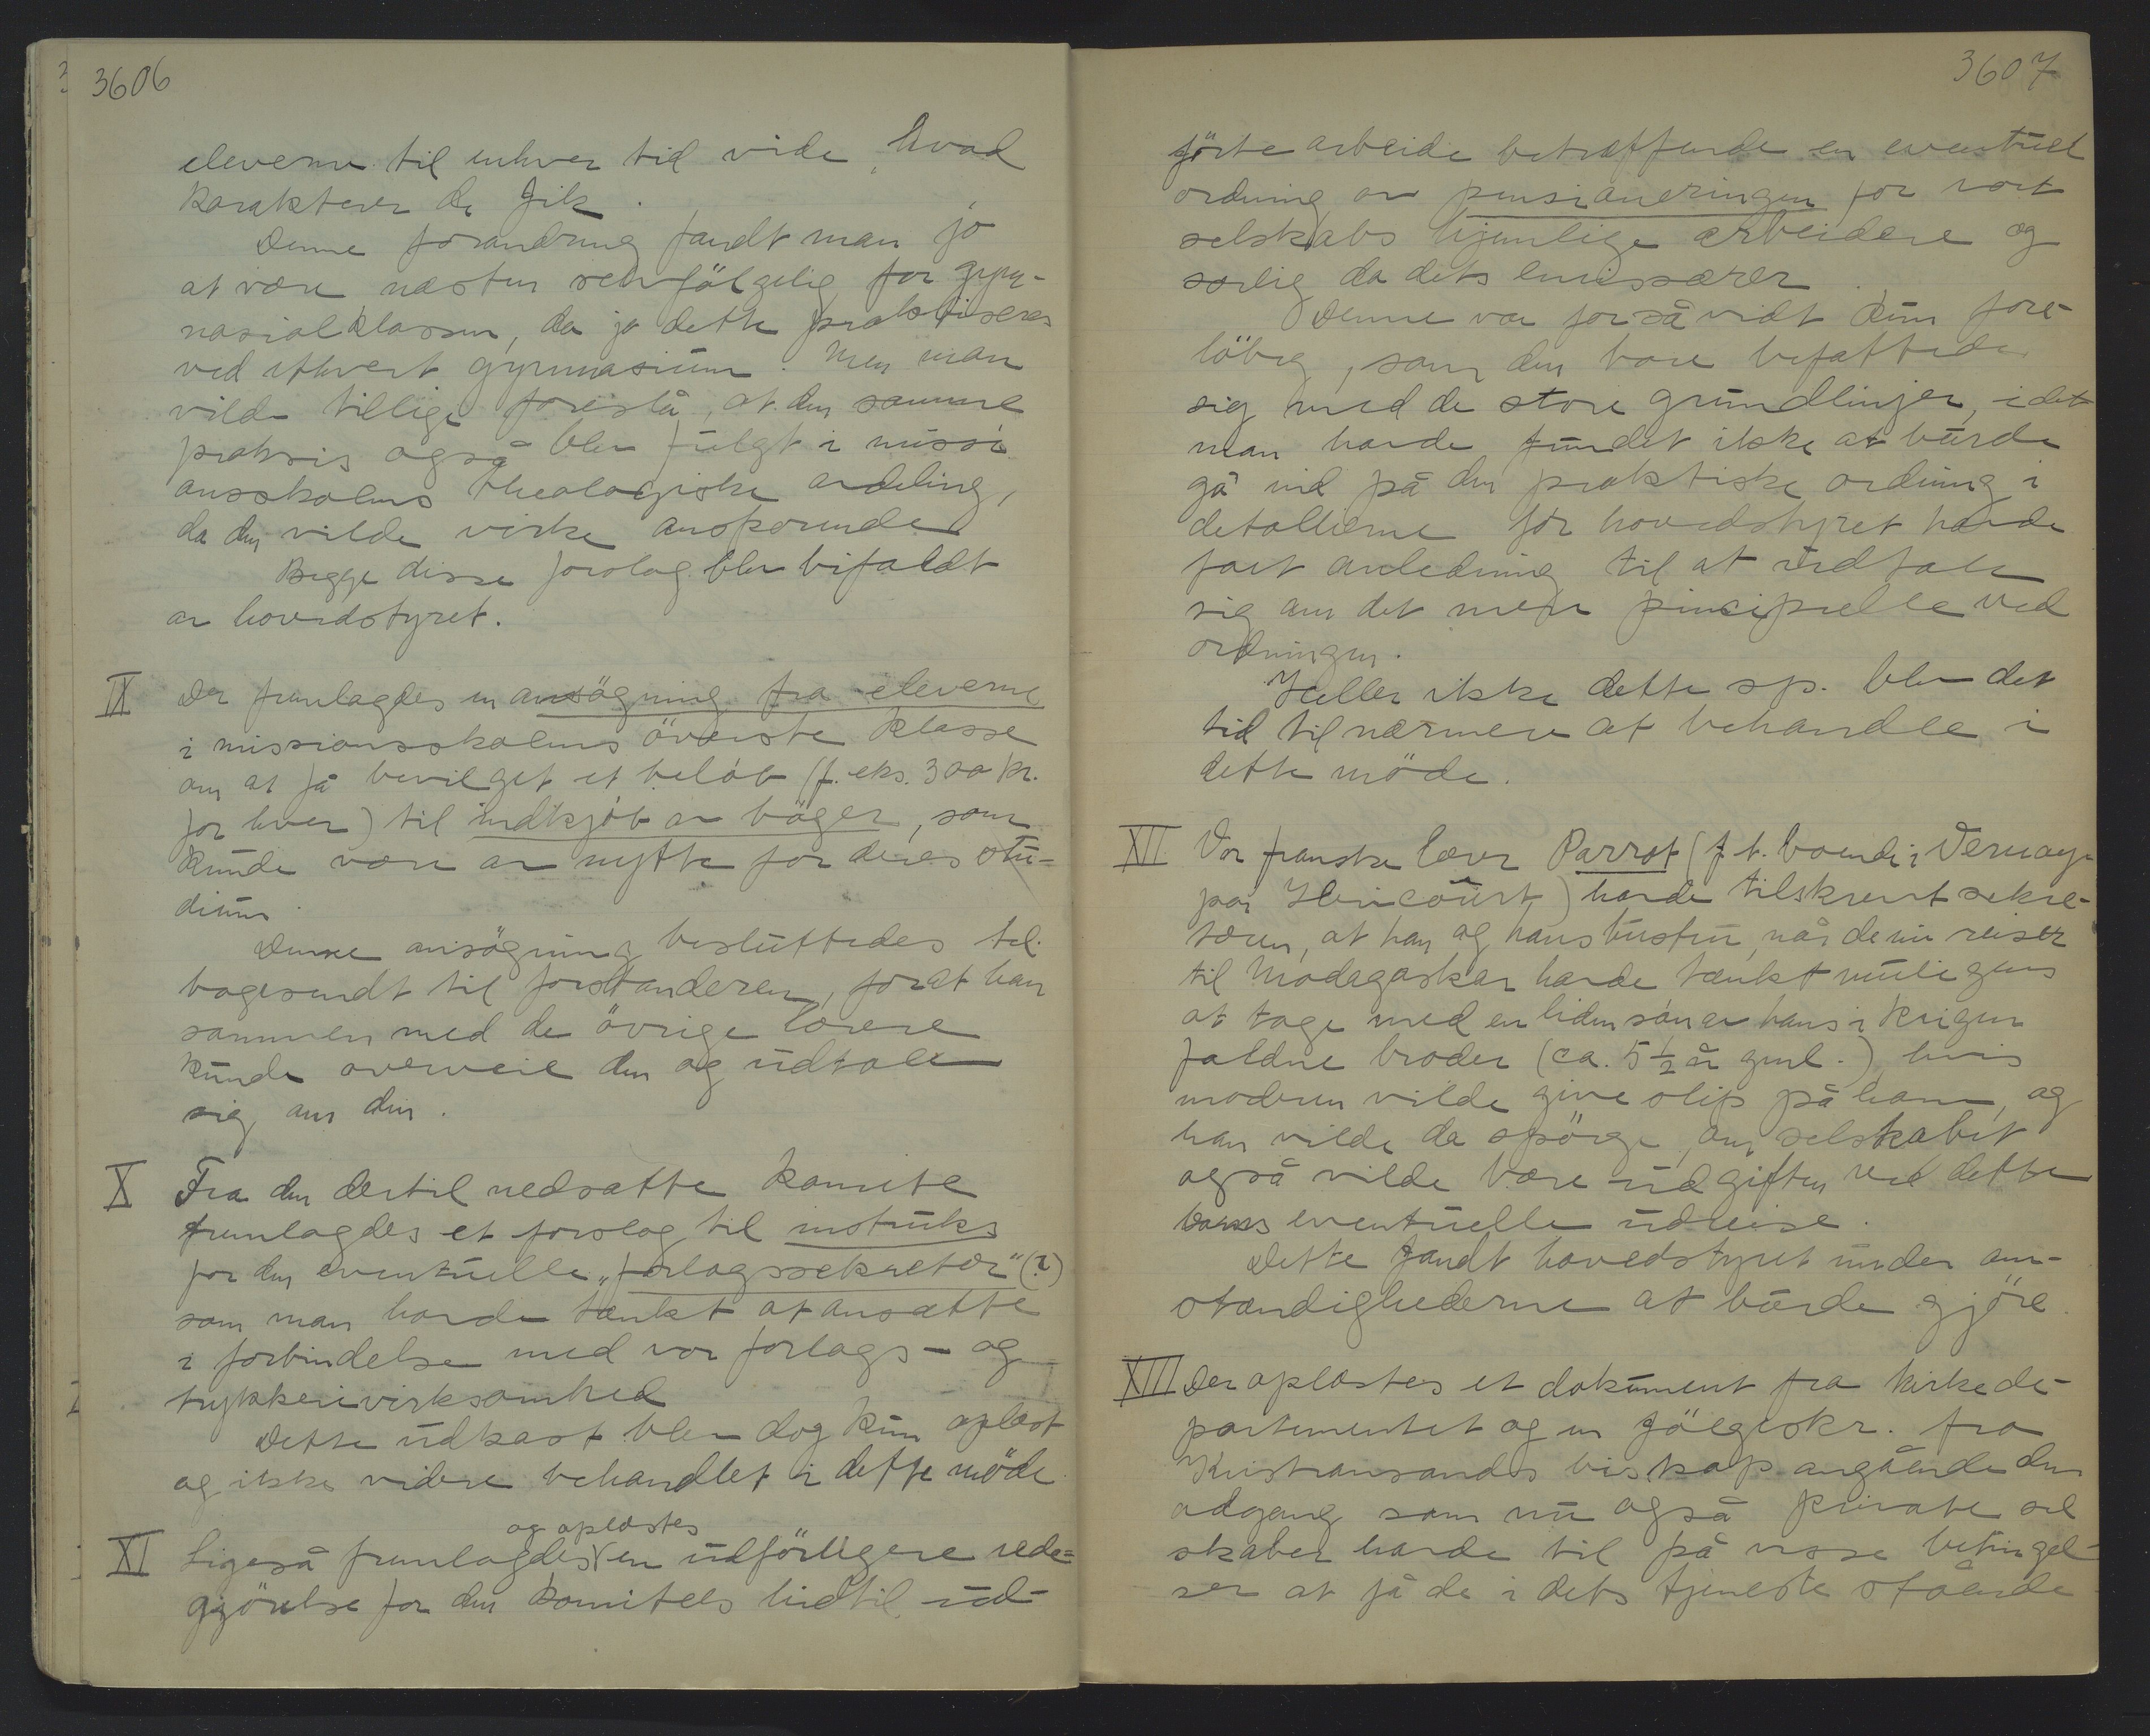 3606
eleverne til enhver tid vide, hvad
karakterer de fik.
Denne forandring fandt man jo
at være næsten selvfölgelig for gym-
nasialklassen, da jo dette praktiseres
ved ethvert gymnasium. Men man
vilde tillige foreslå, at den samme
praksis også blev fulgt i missi-
onsskolens theologiske avdeling,
da den vilde virke ansporende
Begge disse forslag blev bifaldt
av hovedstyret.
IX Der fremlagdes en ansögning fra eleverne
i missionsskolens överste klasse
om at få bevilget et belöb (f. eks. 300 kr.
for hver) til indkjöb av böger, som
kunde være av nytte for deres stu-
dium.
Denne ansögning besluttedes til-
bagesendt til forstanderen, forat han
sammen med de övrige lærere
kunde overveie den og udtale
sig om den.
X Fra den dertil nedsatte komite
fremlagdes et forslag til instruks
for den eventuelle "forlagssekretær" (?)
som man havde tænkt at ansætte
i forbindelse med vor forlags- og
trykkerivirksomhed
Dette udkast blev dog kun oplæst
og ikke videre behandlet i dette möde.
og oplæstes
XI Ligeså fremlagdes en udförligere rede-
gjörelse for den komitees hidtil ud-
3607
förte arbeide betræffende en eventuel
ordning av pensioneringen for vort
selskabs hjemlige arbeidere og
særlig da dets emissærer.
Denne var forsåvidt kun fore-
löbig, som den bare befattede
sig med de store grundlinjer, idet
man havde fundet ikke at burde
gå ind på den praktiske ordning i
detallierne för hovedstyret havde
fået anledning til at udtale
sig om det mere pincipielle ved
ordningen.
Heller ikke dette sp. blev det
tid til nærmere at behandle i
dette möde.
XII Vor franske lærer Parrot (f. t. boende i
par Hericourt) havde tilskrevet sekre-
tæren, at han og hans hustru, når de nu reiser
til Madagaskar havde tænkt muligens
at tage med en liden sön av hans i krigen
faldne broder (ca. 5 1/2 år gml.), hvis
moderen vilde give slip på ham, og
han vilde da spörge, om selskabet
også vilde bære udgiften ved dette
barns eventuelle udreise.
Dette fandt hovedstyret under om-
stændighederne at burde gjöre.
XIII Der oplæstes et dokument fra kirkede-
partementet og en fölgeskr. fra
Kristiansands biskop angående den
adgang som nu også private sel
skaber havde til på visse betingel-
ser at få de i dets tjeneste stående